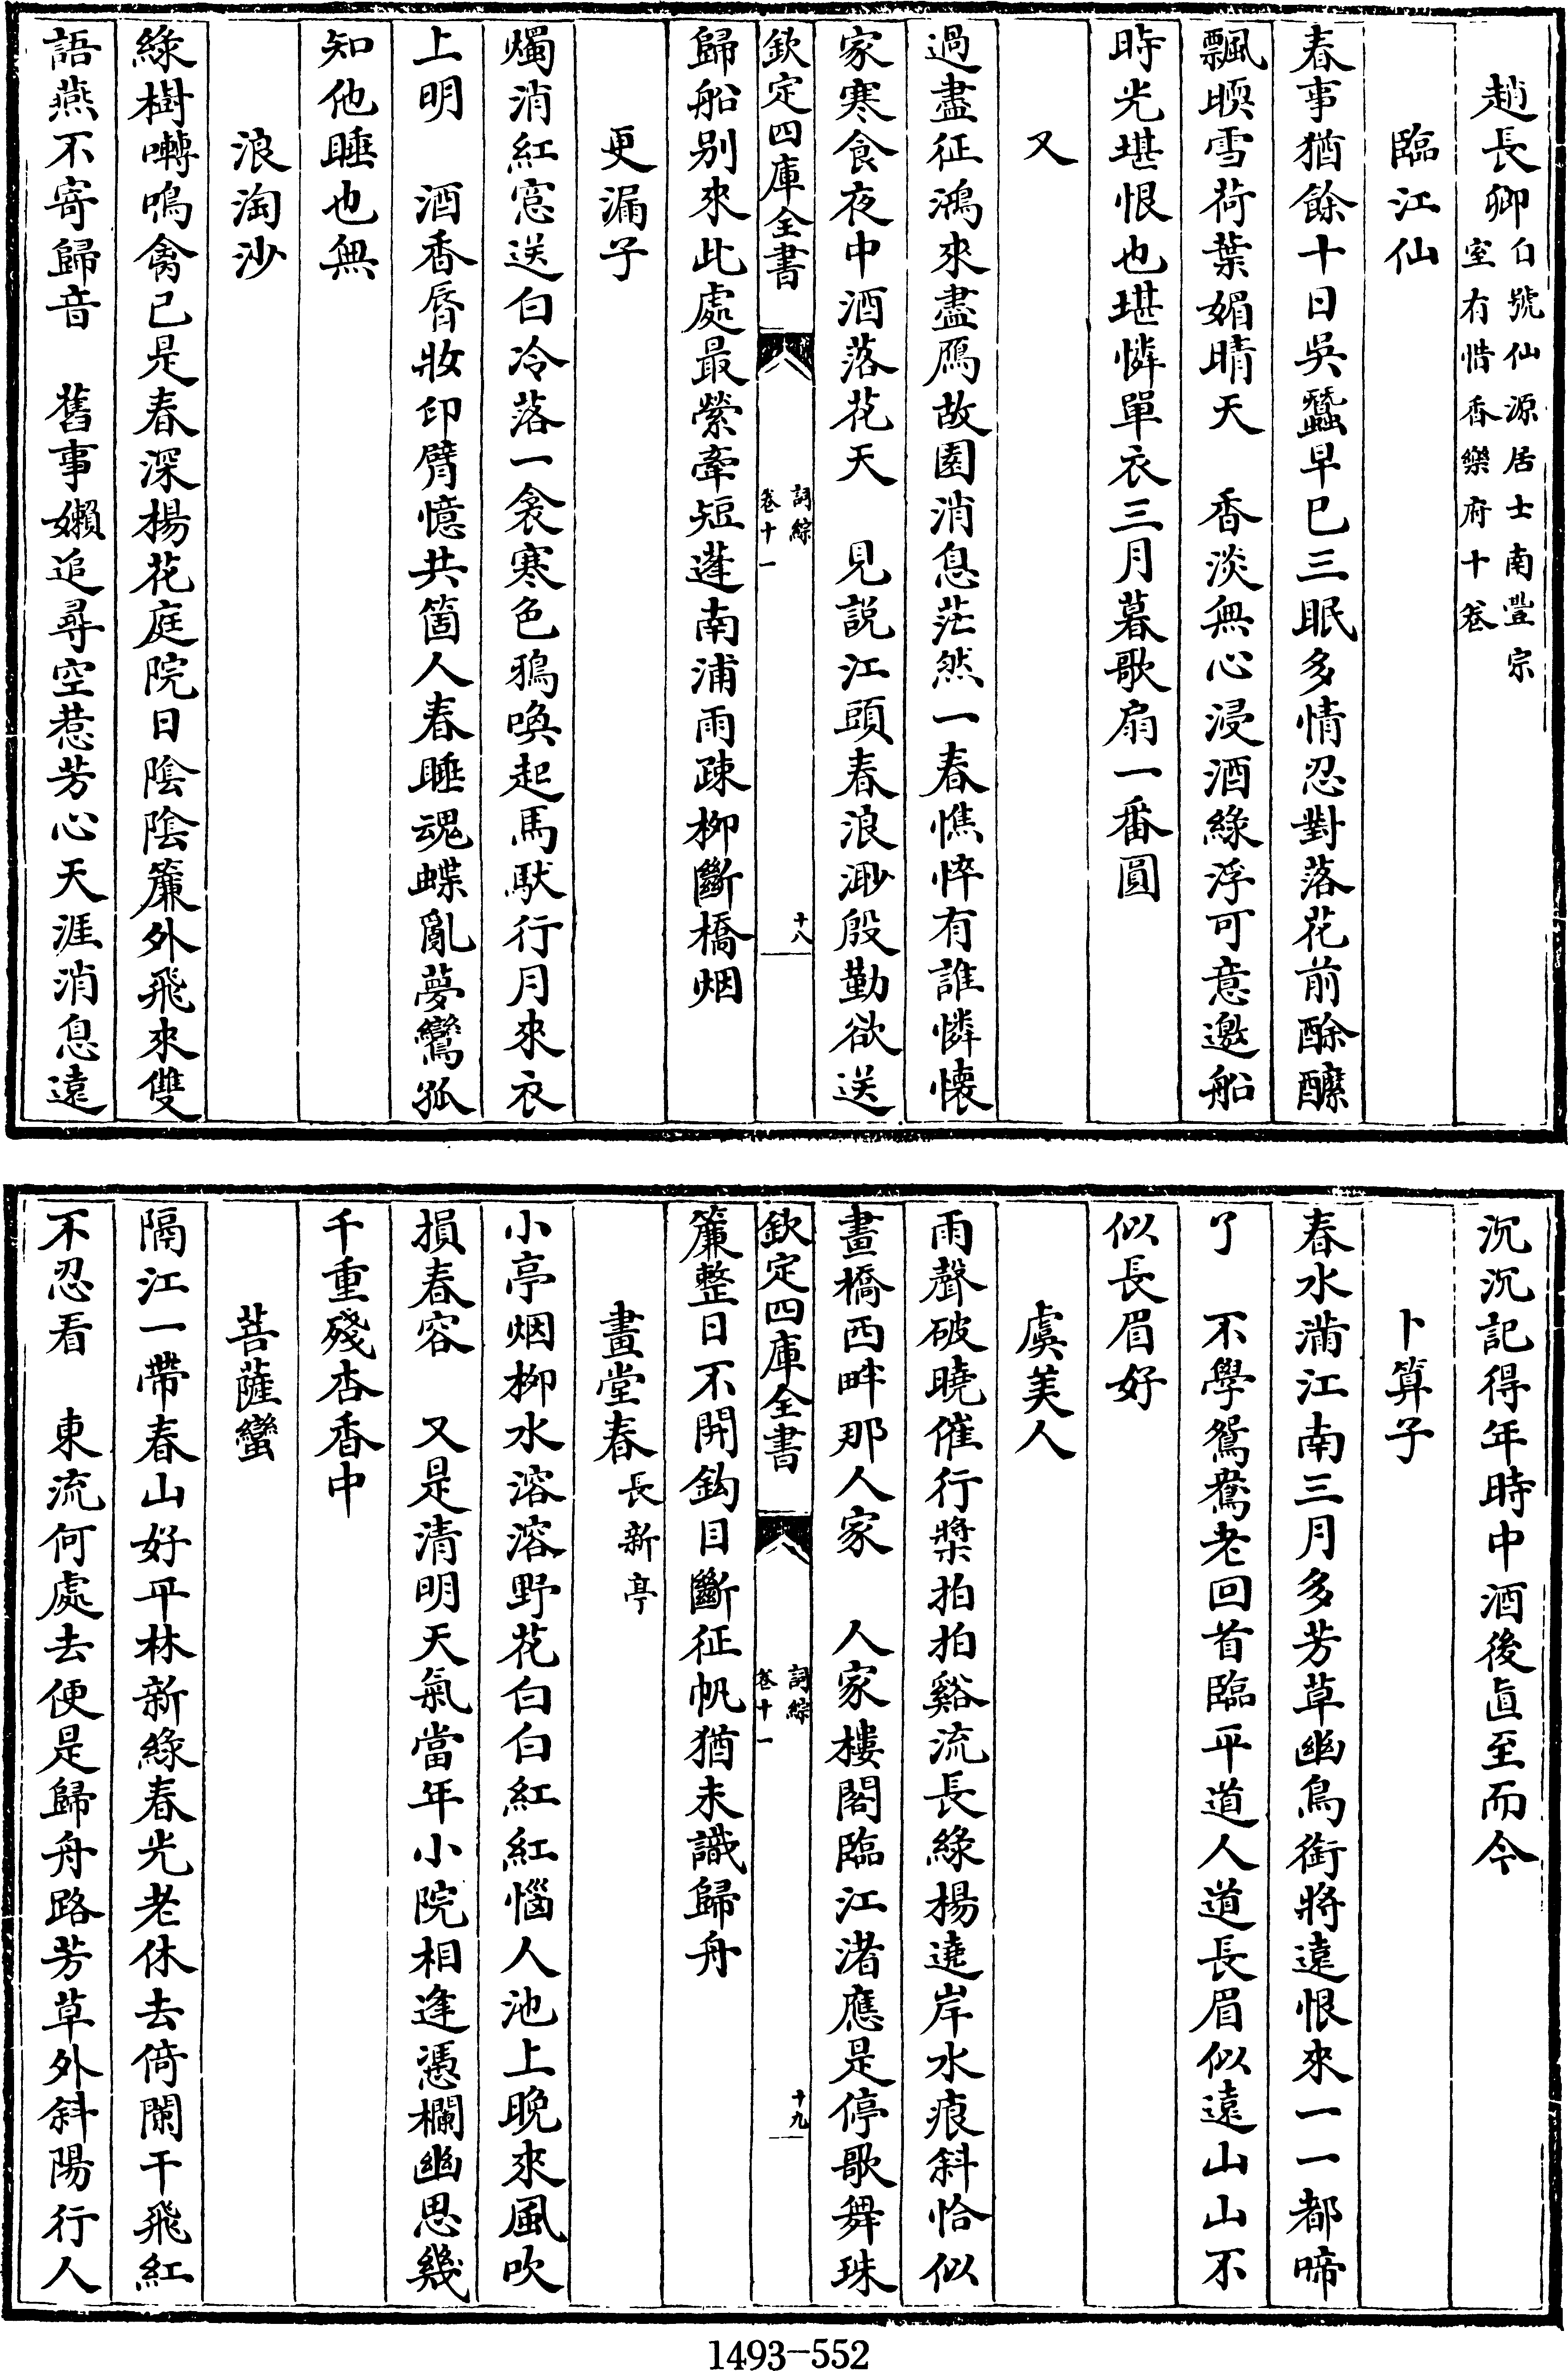 趙長卿自號仙源居士南豐宗室有惜香樂府十卷
臨江仙
春事猶餘十日吳蠶早已三眠多情忍對落花前酴醿
飄暝雪荷葉媚晴天　香淡無心浸酒綠浮可意邀船
時光堪恨也堪憐單衣三月暮歌扇一番圓
又
過盡征鴻來盡鴈故園消息茫然一春憔悴有誰憐懷
家寒食夜中酒落花天　見說江頭春浪渺殷勤欲送
欽定四庫全書　詞綜卷十一　十八
歸船别來此處最縈牽短蓬南浦雨疎柳斷橋烟
更漏子
燭消紅窓送白冷落一衾寒色鴉喚起馬馱行月來衣
上明　酒香脣妝印臂憶共箇人春睡魂蝶亂夢鸞孤
知他睡也無
浪淘沙
綠樹囀鳴禽已是春深楊花庭院日陰陰簾外飛來雙
語燕不寄歸音　舊事嬾追尋空惹芳心天涯消息遠
沉沉記得年時中酒後直至而今
卜算子
春水滿江南三月多芳草幽鳥銜將遠恨來一一都啼
了　不學鴛鴦老回首臨平道人道長眉似遠山山不
似長眉好
虞美人
雨聲破曉催行槳拍拍谿流長綠楊遶岸水痕斜恰似
畫橋西畔那人家　人家樓閣臨江渚應是停歌舞珠
欽定四庫全書　詞綜卷十一　十九
簾整日不開鈎目斷征帆猶未識歸舟
畫堂春長新亭
小亭烟柳水溶溶野花白白紅紅惱人池上晚來風吹
損春容　又是清明天氣當年小院相逢憑欄幽思幾
千重殘杏香中
菩薩蠻
隔江一帶春山好平林新綠春光老休去倚闌干飛紅
不忍看　東流何處去便是歸舟路芳草外斜陽行人
1493-552